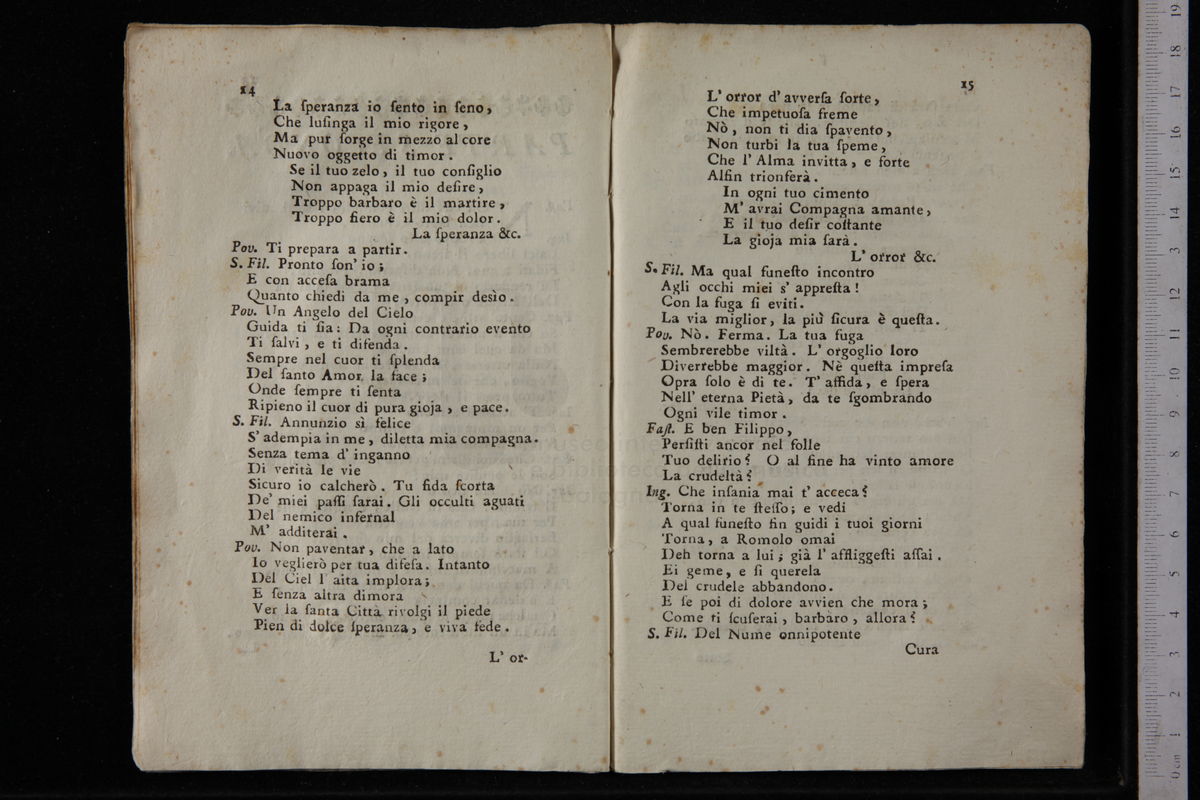 14
La ſperanza io ſento in ſeno,
Che luſinga il mio rigore,
Ma pur ſorge in mezzo al core
Nuovo oggetto di timor.
Se il tuo zelo, il tuo conſiglio
Non appaga il mio deſire,
Troppo barbaro è il martire,
Troppo fiero è il mio dolor.
La ſperanza &c.
Pov. Ti prepara a partir.
S. Fil. Pronto ſon' io;
E con acceſa brama
Quanto chiedi da me, compir desìo.
Pov. Un Angelo del Cielo
Guida ti ſia: Da ogni contrario evento
Ti ſalvi, e ti difenda.
Sempre nel cuor ti ſplenda
Del ſanto Amor, la face;
Onde ſempre ti ſenta
Ripieno il cuor di pura gioja, e pace.
S. Fil. Annunzio sì felice
S' adempia in me, diletta mia compagna.
Senza tema d' inganno
Di verità le vie
Sicuro io calcherò. Tu fida ſcorta
De' miei paſſi ſarai. Gli occulti aguati
Del nemico infernal
M' additerai.
Pov. Non paventar, che a lato
Io veglierò per tua difeſa. Intanto
Del Ciel l' aita implora;
E ſenza altra dimora
Ver la ſanta Città rivolgi il piede
Pien di dolce ſperanza, e viva fede.
L' or-
15
L' orror d' avverſa ſorte,
Che impetuoſa freme
Nò, non ti dia ſpavento,
Non turbi la tua ſpeme,
Che l' Alma invitta, e forte
Alfin trionferà.
In ogni tuo cimento
M' avrai Compagna amante,
E il tuo deſir coſtante
La gioja mia ſarà.
L' orror &c.
S. Fil. Ma qual funeſto incontro
Agli occhi miei s' appreſta!
Con la fuga ſi eviti.
La via miglior, la più ſicura è queſta.
Pov. Nò. Ferma. La tua fuga
Sembrerebbe viltà. L' orgoglio loro
Diverrebbe maggior. Nè queſta impreſa
Opra ſolo è di te. T' affida, e ſpera
Nell' eterna Pietà, da te ſgombrando
Ogni vile timor.
Faſt. E ben Filippo,
Perſiſti ancor nel folle
Tuo delirio? O al fine ha vinto amore
La crudeltà?
Ing. Che inſania mai t' acceca?
Torna in te ſteſſo; e vedi
A qual funeſto fin guidi i tuoi giorni
Torna, a Romolo omai
Deh torna a lui; già l' affliggeſti aſſai.
Ei geme, e ſi querela
Del crudele abbandono.
E ſe poi di dolore avvien che mora;
Come ti ſcuſerai, barbaro, allora?
S. Fil. Del Nume onnipotente
Cura